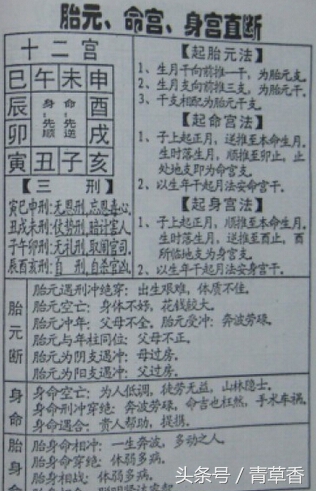 胎元、命宫、身宫直断
十二宫
巳午未申
辰 身:先顺 命:先逆 酉
卯 戌
寅丑子亥
【三刑】
寅巳申刑:无恩刑,忘恩毒心。
丑戌未刑:仗势刑,暗计害人。
子午卯刑:无礼刑,取闹官司。
辰酉亥刑:自刑,自杀官凶。
【起胎元法】
1、生月干向前推一干,为胎元支。
2、生月支向前推三支,为胎元干。
3、干支相配为胎元干支。
【起命宫法】
1、子上起正月,逆推至本命生月。
生时落生月,顺推至卯止,止
处地支即为命宫支。
2、以生年干起月法安命宫干。
【起身宫法】
1、子上起正月,顺推至本命生月。
生时落生月,逆推至酉止,酉
所临地支为身宫支。
2、以生年干起月法安身宫干。
胎元断
胎元遇刑冲绝穿:出生艰难,体质不佳。
胎元空亡:身体不好,花钱较大。
胎元冲年:父母不全。胎元受冲:奔波劳碌。
胎元与年柱同位:父母不正。
胎元为阴支遇冲:母过房。
胎元为阳支遇冲:父过房。
身命
身命空亡:为人低调,徒劳无益,山林隐士。
身命刑冲穿绝:奔波劳碌,命吉也枉然,手术车祸。
身命遇合:贵人帮助,提携。
胎身命
胎身命相冲:一生奔波,多动之人。
胎身命穿绝:体弱多病。
胎身相战:体弱多病。
头条号/青草香